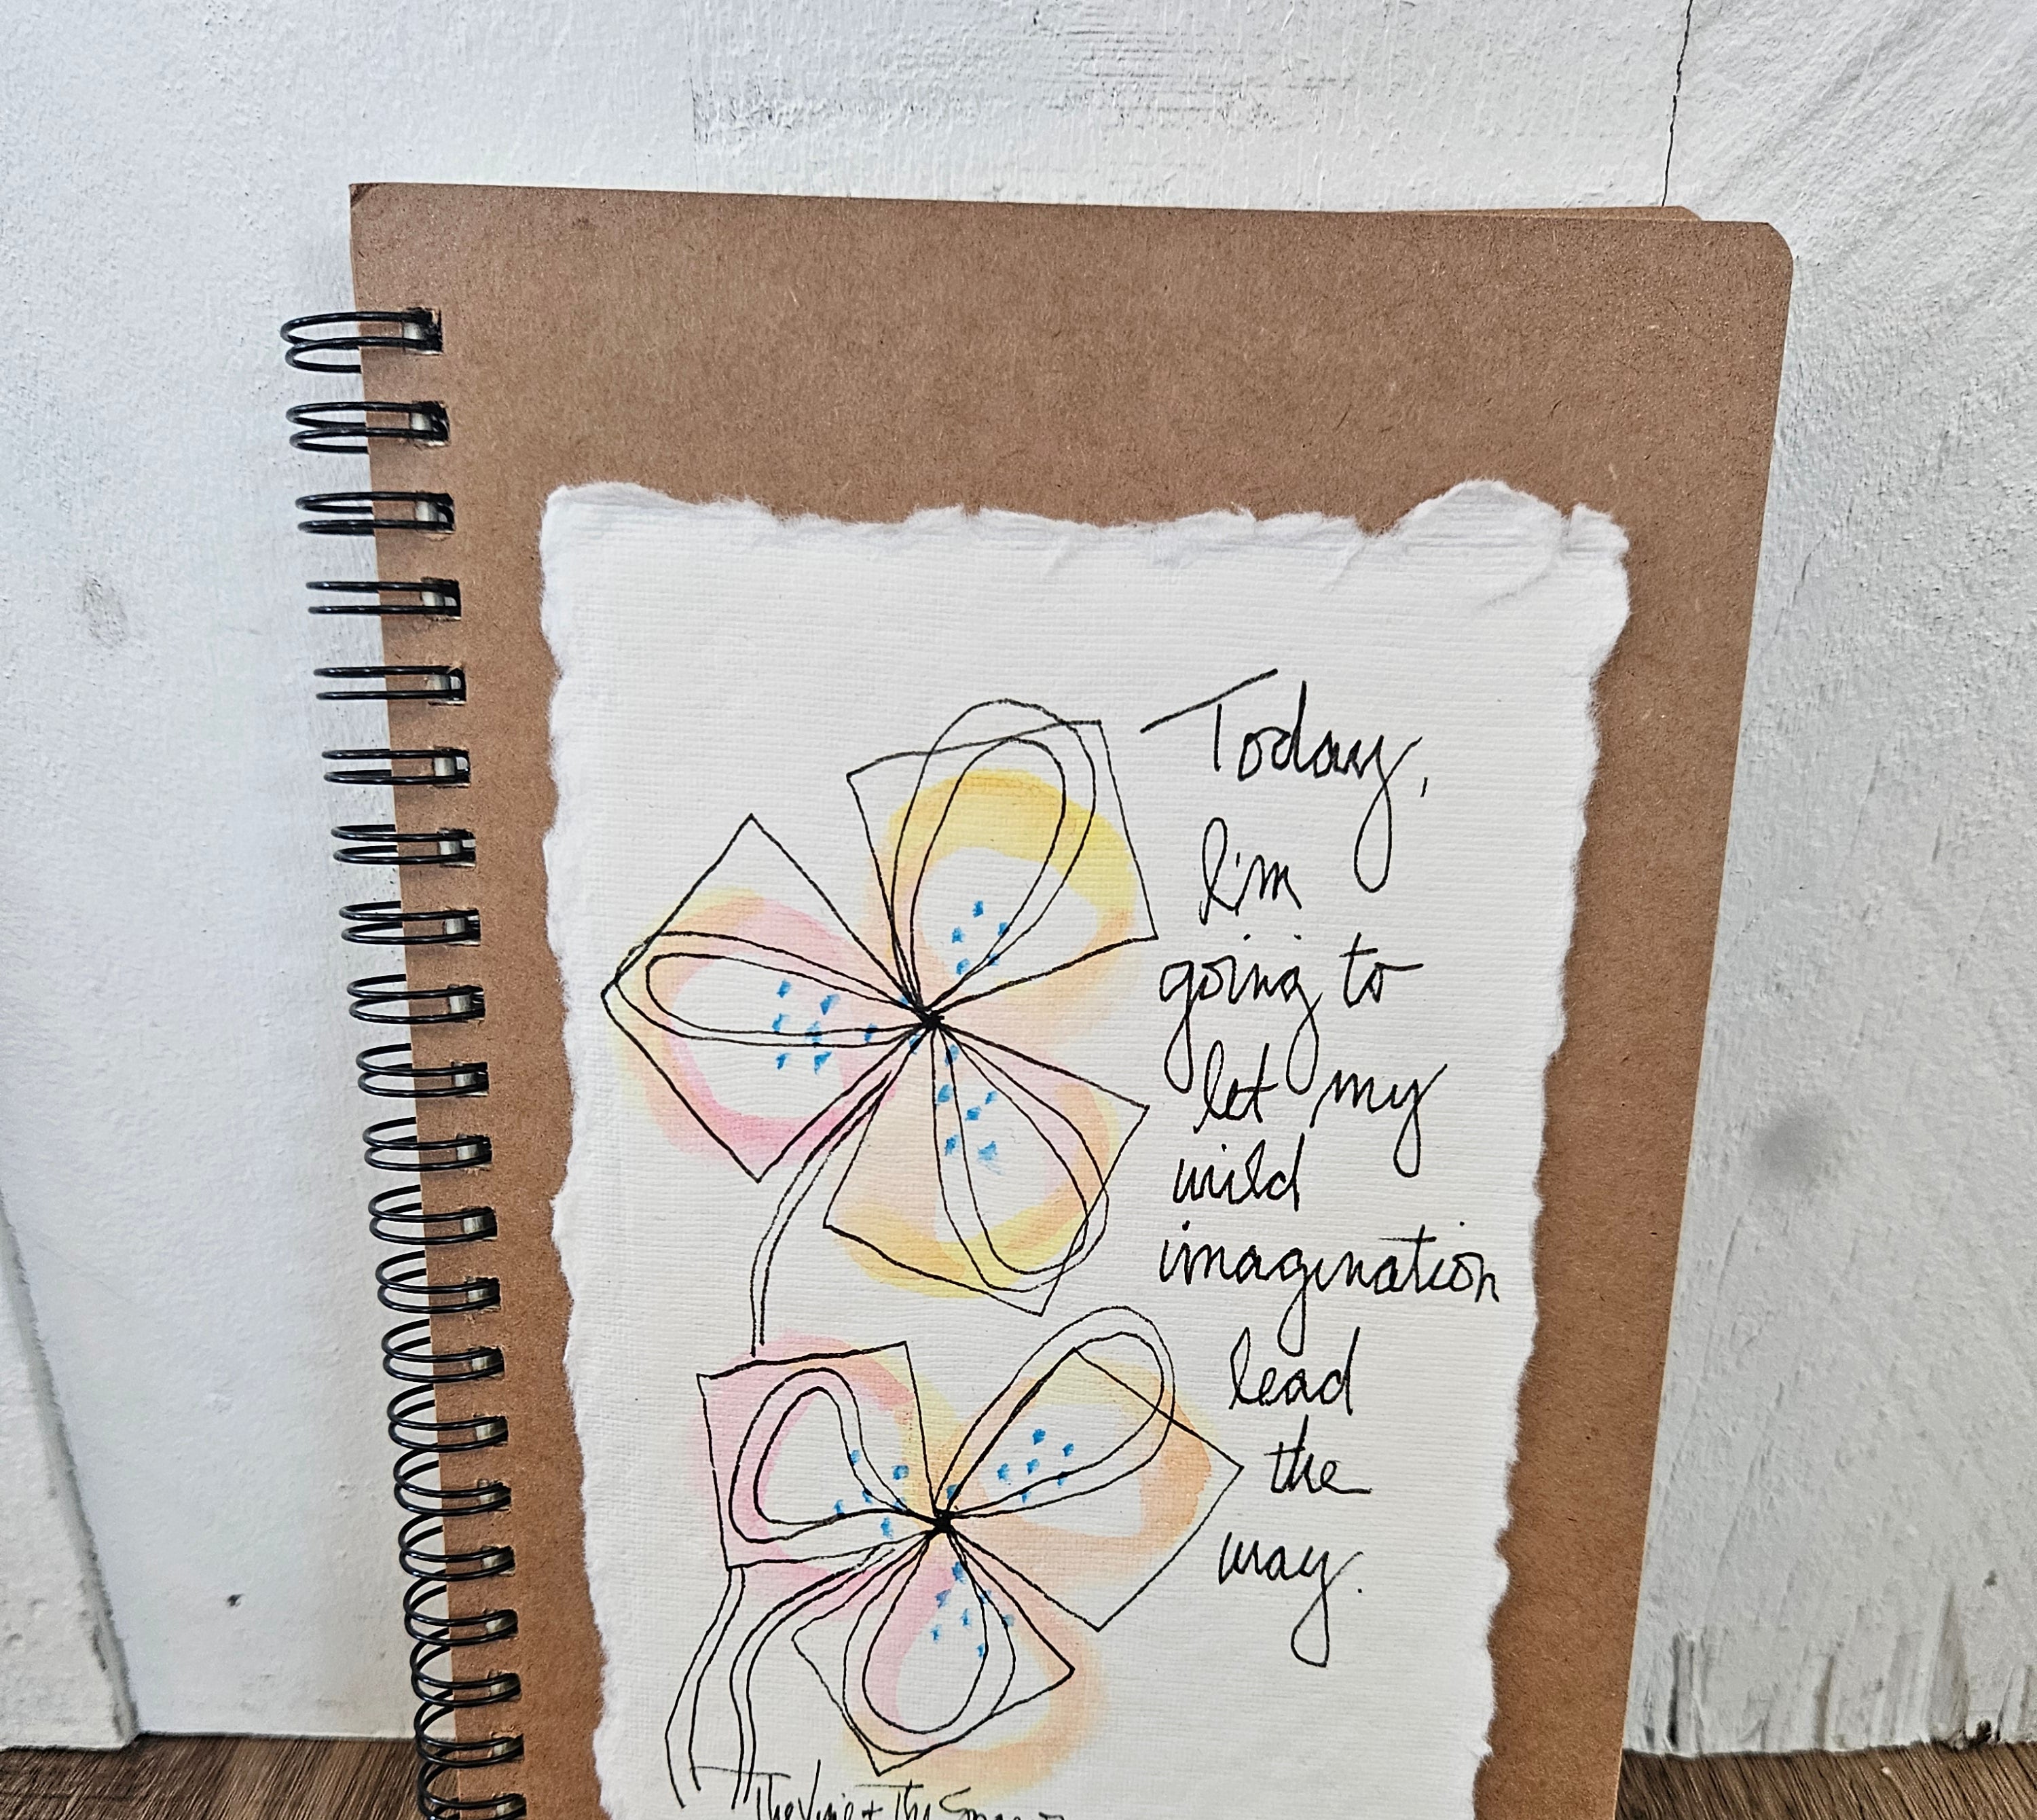 Today,
I'm
going to
let my
wild
imagination
lead
the
way.
The